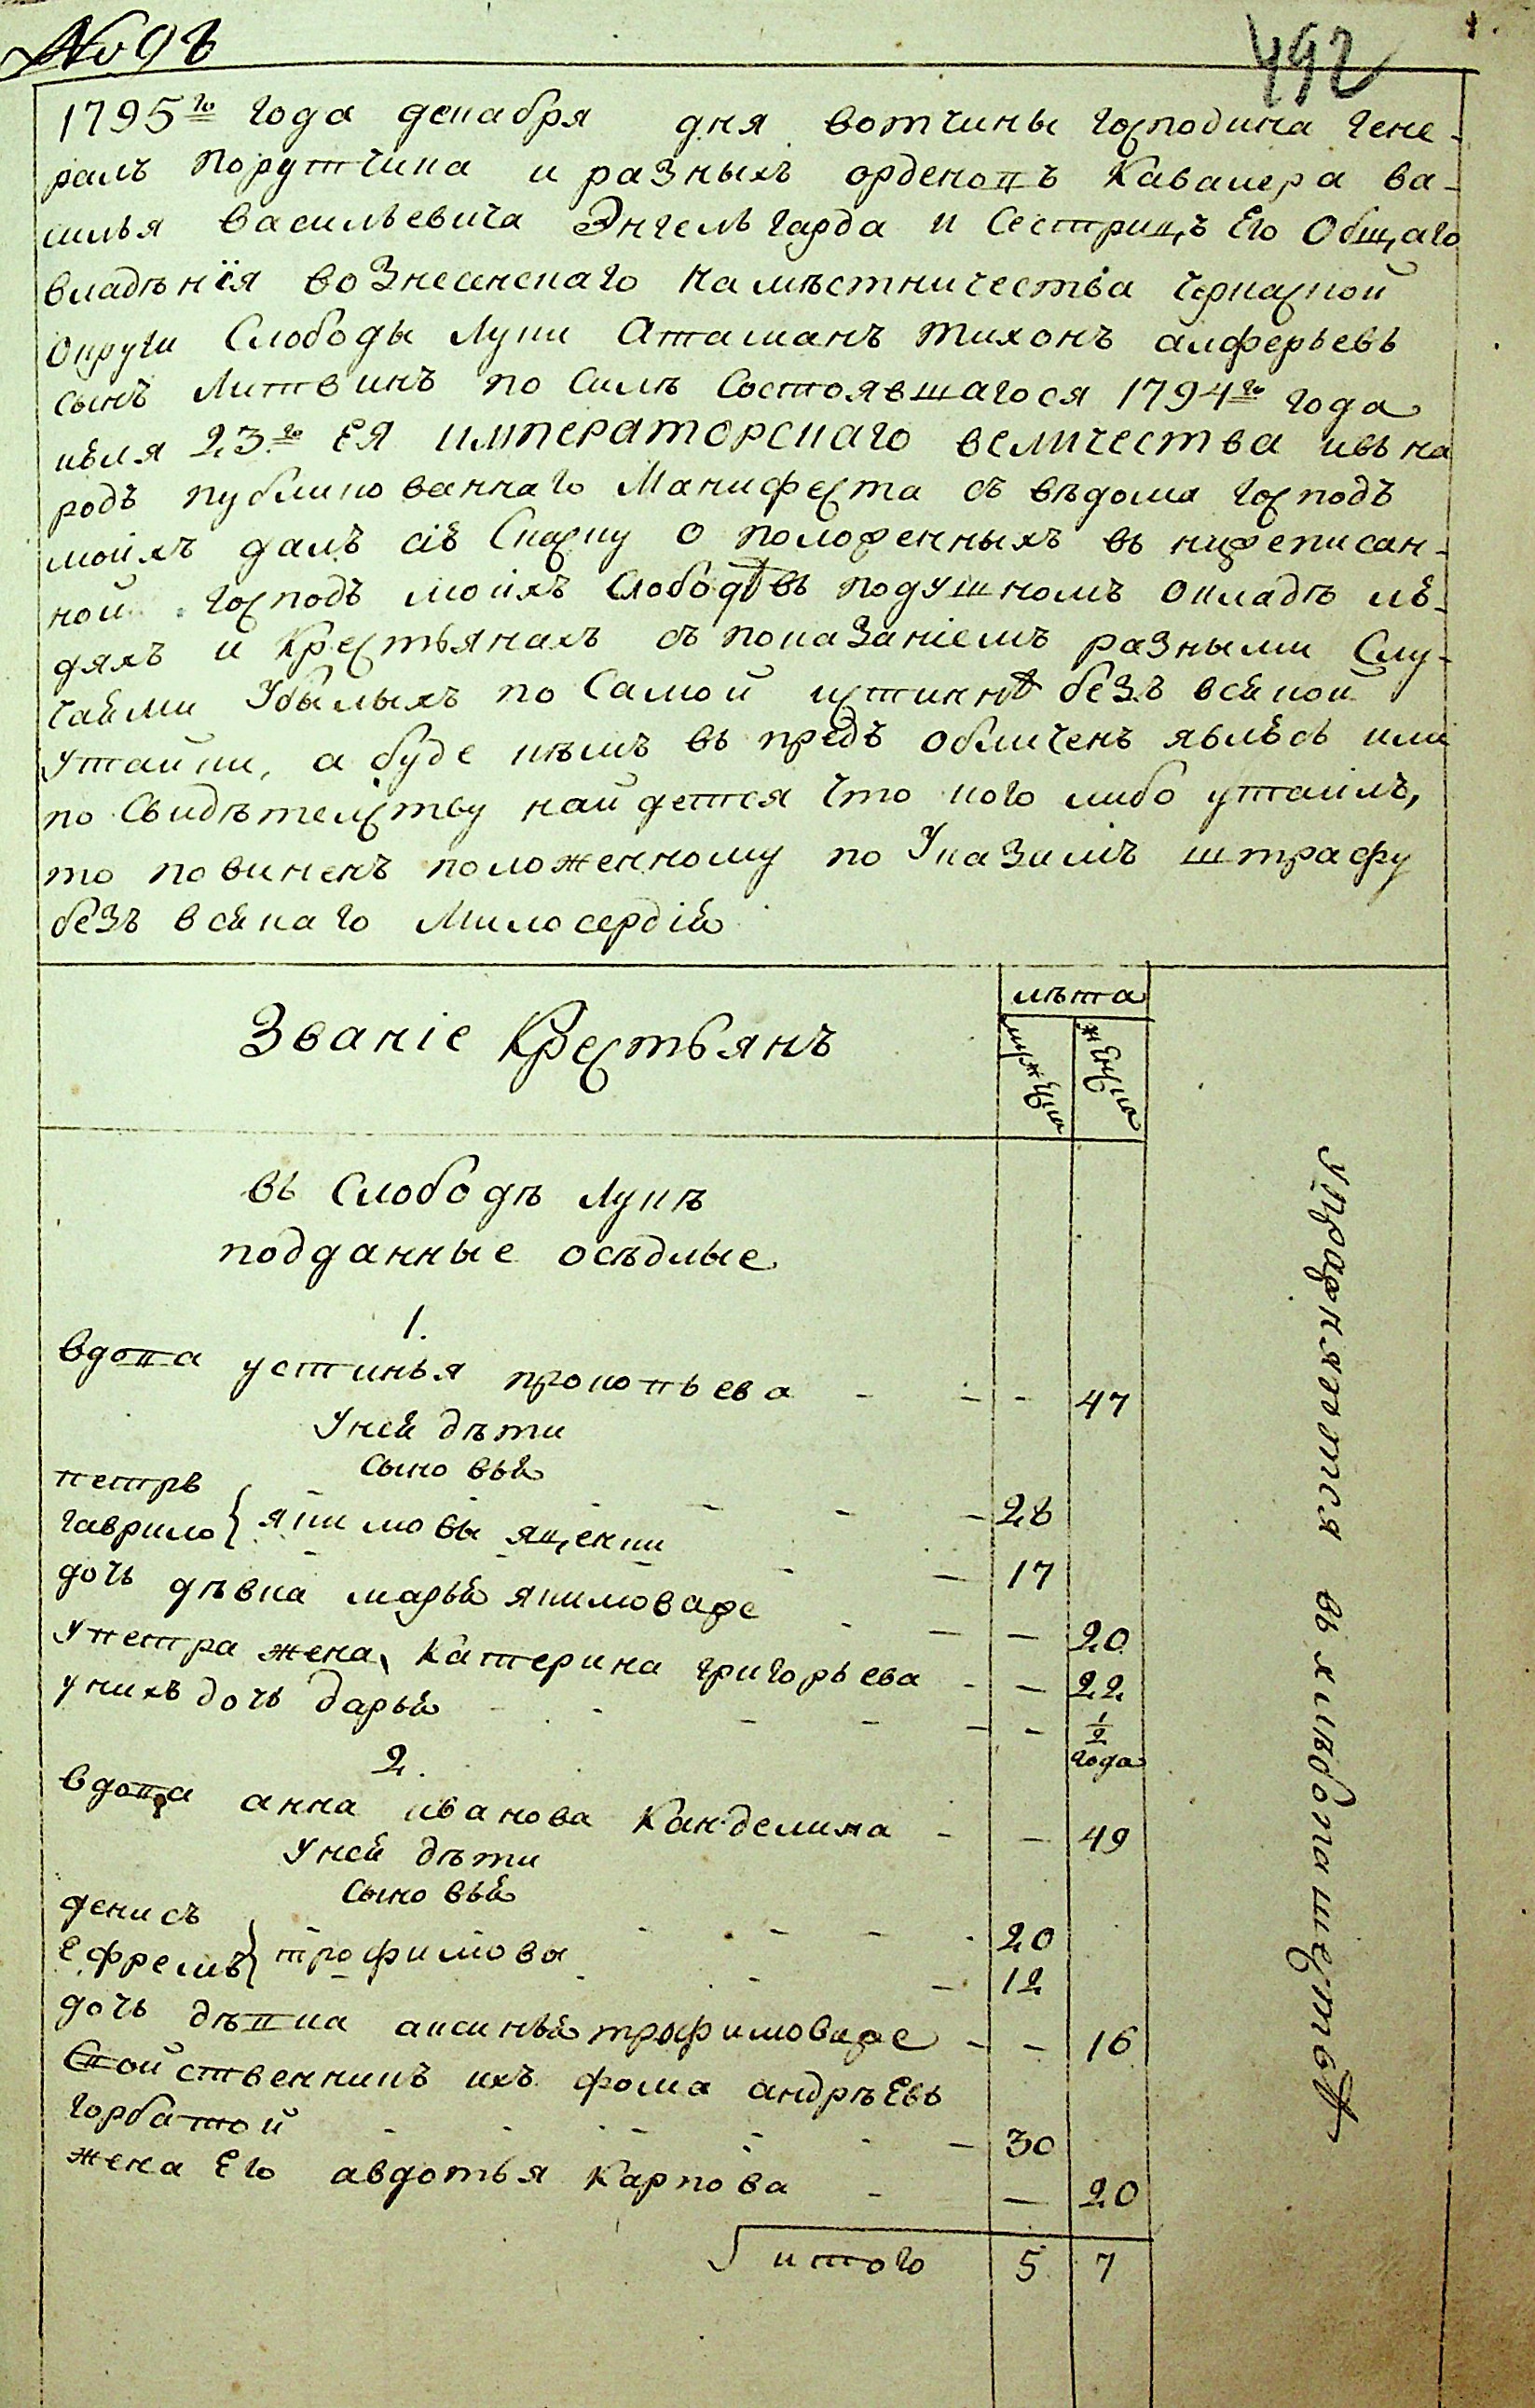 № 98
492
1.
1795го года декабря дня вотчины господина гене-
ралъ порутчика и разныхъ орденовъ кавалера ва-
силья васильевича Энгельгарда и Сестрицъ Его Общаго
владѣнїя вознесенскаго намѣстничества Черкаской
округи Слободы Луки Атаманъ тихонъ алферьевъ
сынъ литвинъ по Силѣ Состоявшагося 1794го года
июля 23го Ея императорскаго величества ивъ на
родъ публикованнаго Манифеста съ вѣдома господъ
моихъ далъ сию Сказку о положенныхъ въ нижеписан-
ной господъ моихъ Слободѣ въ подушномъ окладѣ лю-
дяхъ и Крестьянахъ съ показаніемъ разными Слу-
чаями Убылыхъ по Самой истиннѣ безъ всякой
утайки, а буде кѣмъ въ предъ обличенъ явлюсь или
по Свидѣтелству найдется что кого либо утаилъ,
то повиненъ положенному по Указамъ штрафу
безъ всякаго Милосердія
Званіе Крестьянъ
лѣта
мужеска
женска
въ Слободѣ Лукѣ
подданные осѣдлые
1.
вдова устинья прокопьева - - - 47
У ней дѣти
сыновья
петръ - - - 28
гаврило } якимовы яценки - - 17
дочь дѣвка марья якимоваже - - - 20
У петра жена катерина григорьева - - 22
у нихъ дочь дарья - - - - 1/2 года
2.
вдова анна иванова Канделина - - 49
У ней дѣти
сыновья
денисъ - - - - 20
Ефремъ } трофимовы - - - 12
дочь дѣвка аксинья трофимоваже - - 16
Свойственникъ ихъ фома андрѣевъ
горбатой - - - - - 30
жена Его авдотья Карпова - - 20
итого 5 7
Упражняются въ хлѣбопашествѣ